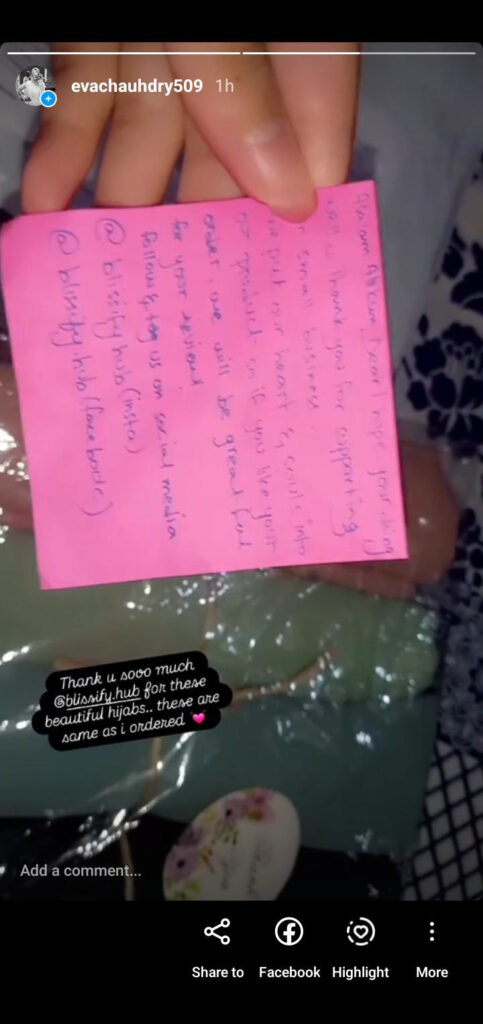 evachauhdry509 1h
Asalam Alikum Dear I hope your doing
well. Thank you for supporting
small business.
put our heart & souls into
our product. so if you like your
order, we will be great ful
for your review!
follow & tag us on social media
@ blissify hub (insta)
@ blissify.hub (facebook)
Thank u sooo much
@blissify.hub for these
beautiful hijabs.. these are
same as i ordered 💗
Add a comment...
Share to Facebook Highlight More